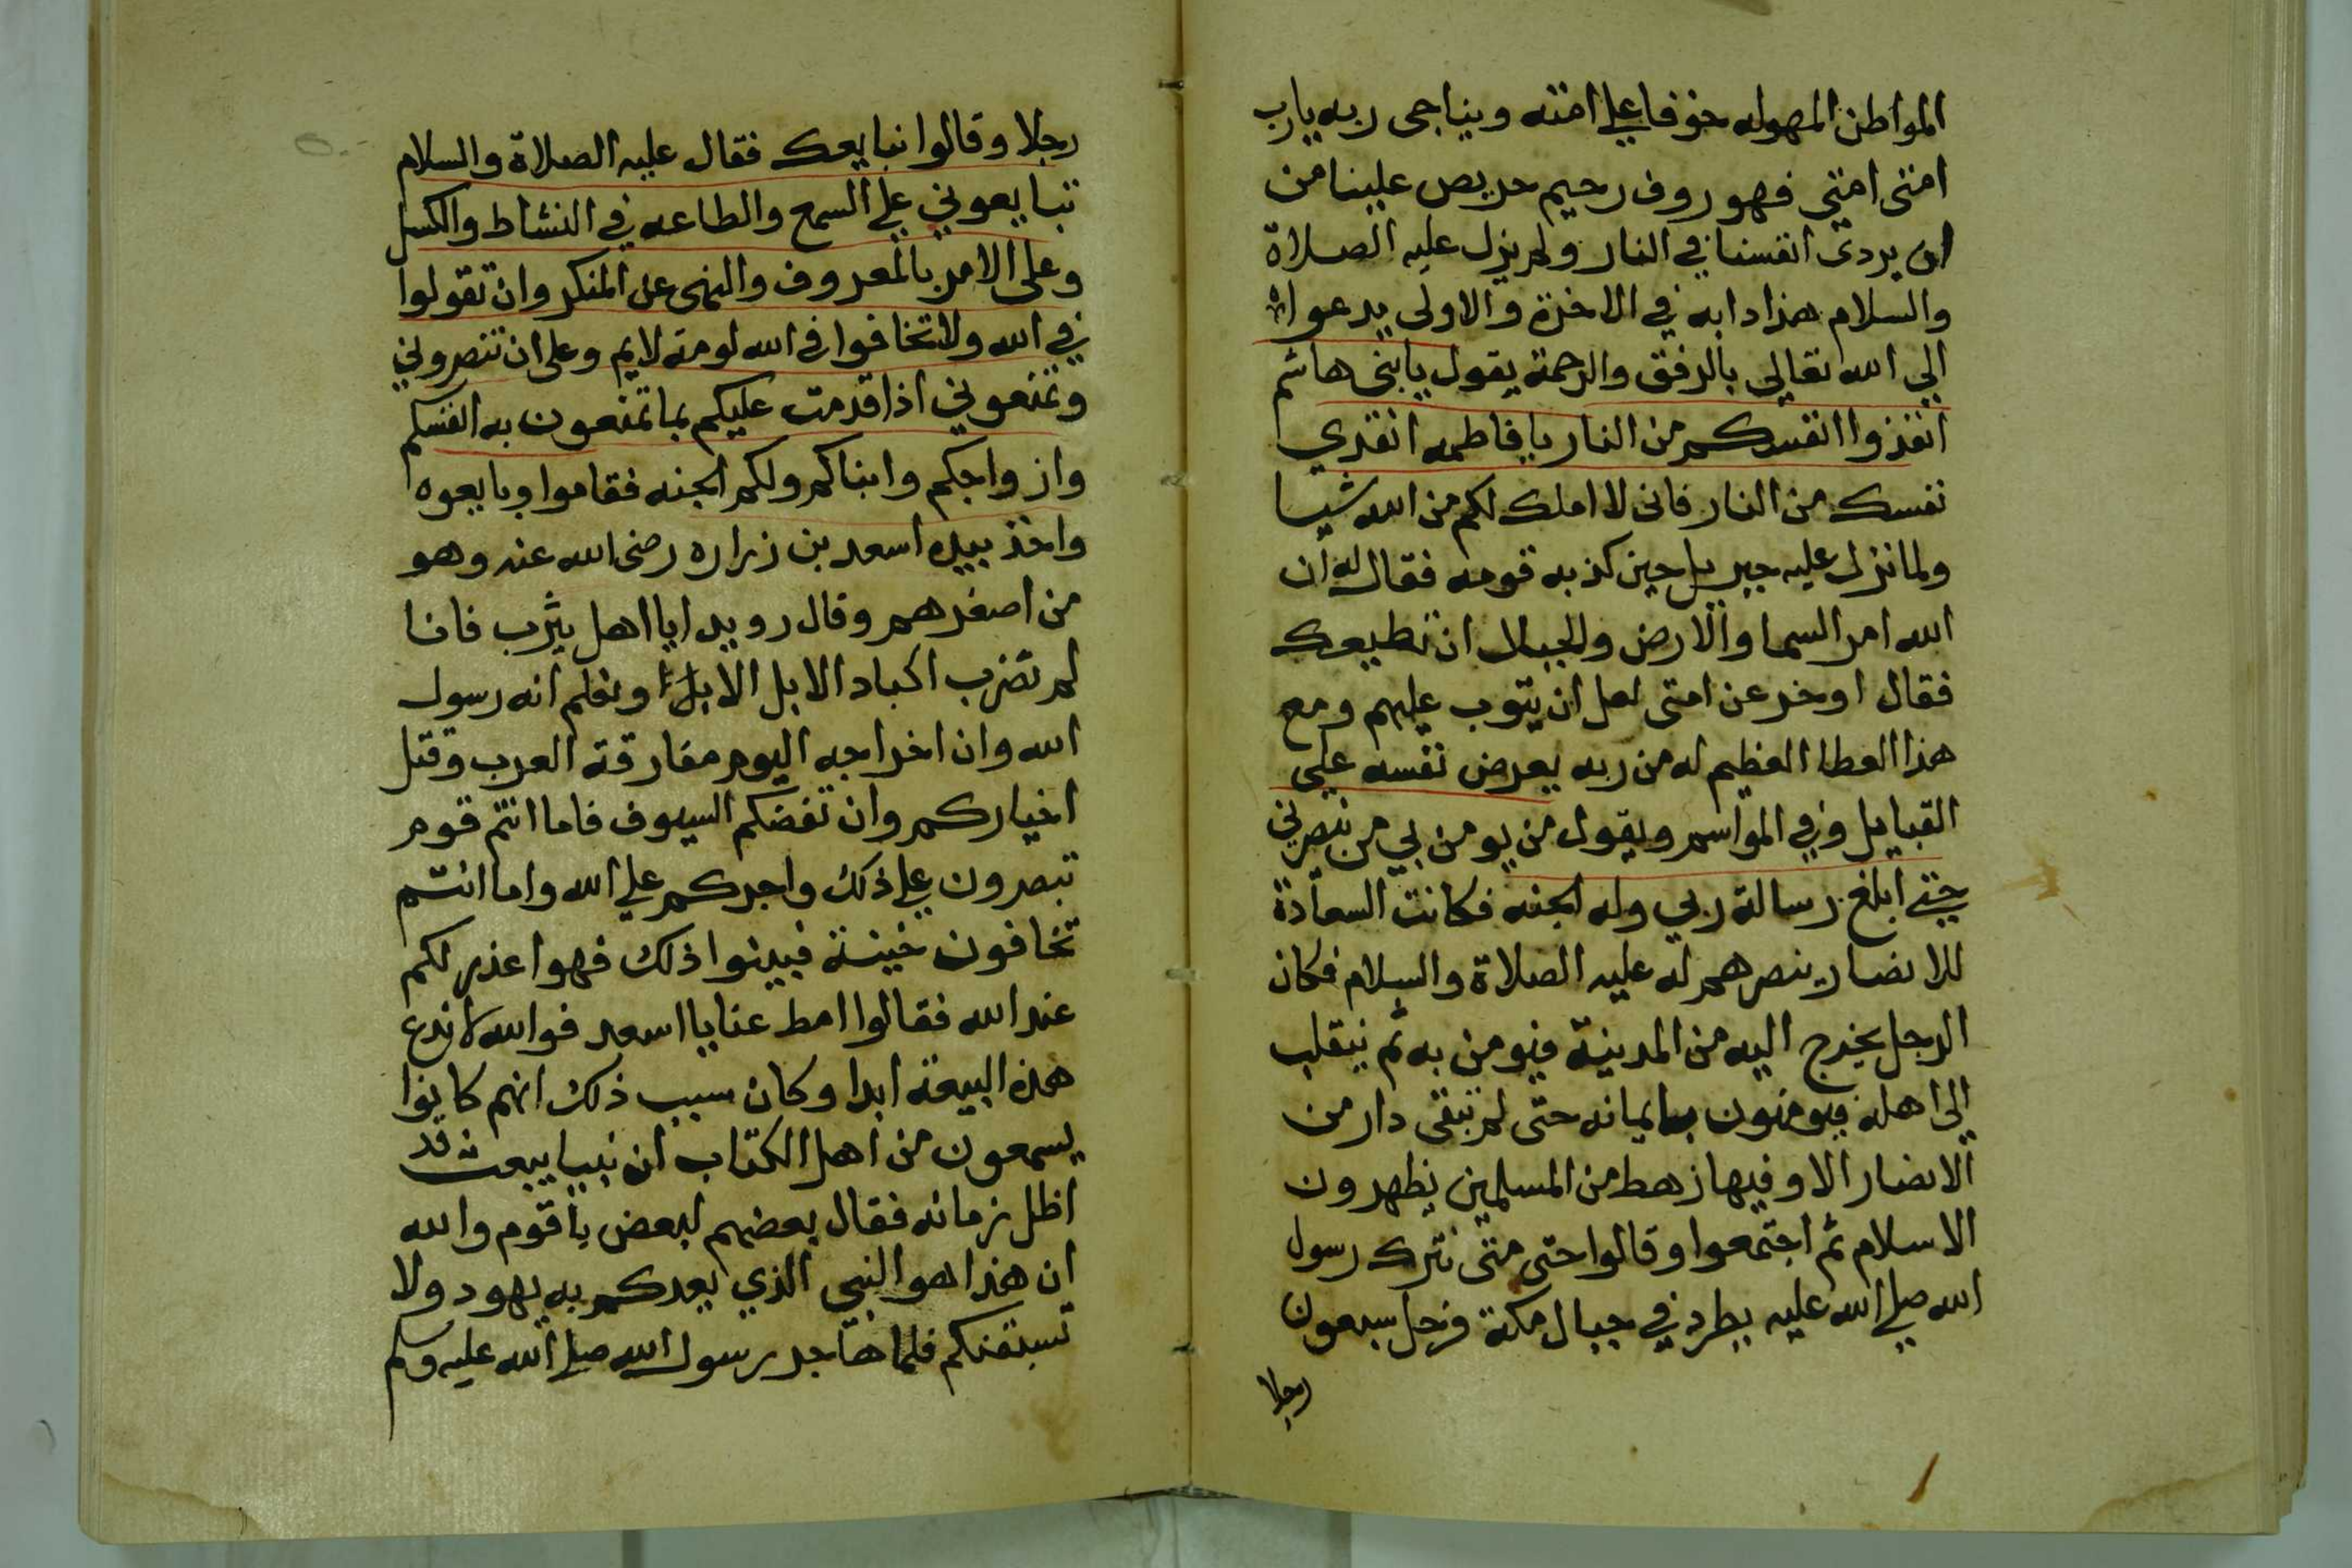 المواطن المهوله خوفا علي امته ويناجى ربه يارب
امتى امتي فهو روف رحيم حريص علينا من
ان يردى انفسنا في النار ولم يزل عليه الصلاة
والسلام هذا دابه في الاخرة والاولى يدعوا
الي الله تعالي بالرفق والرحمة يقول يابنى هاشم
انقذوا انفسكم من النار يا فاطمه انقذي
نفسك من النار فانى لا املك لكم من الله شيا
ولما نزل عليه جبريل حين كذبه قومه فقال له ان
الله امر السما والارض والجبال ان تطيعك
فقال اوخر عن امتى لعل ان يتوب عليهم ومع
هذا العطا العظيم له من ربه يعرض نفسه علي
القبايل وفي المواسم ويقول من يومن بي من ينصرني
حتي ابلغ رسالة ربي وله الجنه فكانت السعادة
للانصار ينصرهم له عليه الصلاة والسلام فكان
الرجل يخرج اليه من المدينة فيومن به ثم ينقلب
الى اهله فيومنون بايمانه حتى لم تبقى دار من
الانصار الا وفيها رهط من المسلمين يظهرون
الاسلام ثم اجتمعوا وقالوا حتى متى نترك رسول
الله صلي الله عليه يطرد في جبال مكة فرحل سبعون
رجلا
رجلا وقالوا نبايعك فقال عليه الصلاة والسلام
تبايعوني علي السمع والطاعه في النشاط والكسل
وعلى الامر بالمعروف والنهى عن المنكر وان تقولوا
في الله ولا تخافوا في الله لومة لايم وعلى ان تنصروني
وتمنعوني اذا قدمت عليكم بما تمنعون به انفسكم
وازواجكم وابناكم ولكم الجنه فقاموا وبايعوه
واخذ بيده اسعد بن زراره رضى الله عنه وهو
من اصغرهم وقال رويدا يا اهل يثرب فانا
لم نضرب اكباد الابل الا ونعلم انه رسول
الله وان اخراجه اليوم مفارقة العرب وقتل
اخياركم وان تعضكم السيوف فاما انتم قوم
تبصرون علي ذلك واجركم علي الله واما انتم
تخافون خينة فبينوا ذلك فهوا عذر لكم
عند الله فقالوا امط عنا يا اسعد فوالله لا ندع
هذه البيعة ابدا وكان سبب ذلك انهم كانوا
يسمعون من اهل الكتاب ان نبيا يبعث قد
اظل زمانه فقال بعضهم لبعض يا قوم والله
ان هذا هو النبي الذي يعدكم به يهود ولا
تسبقنكم فلما هاجر رسول الله صلي الله عليه وسلم